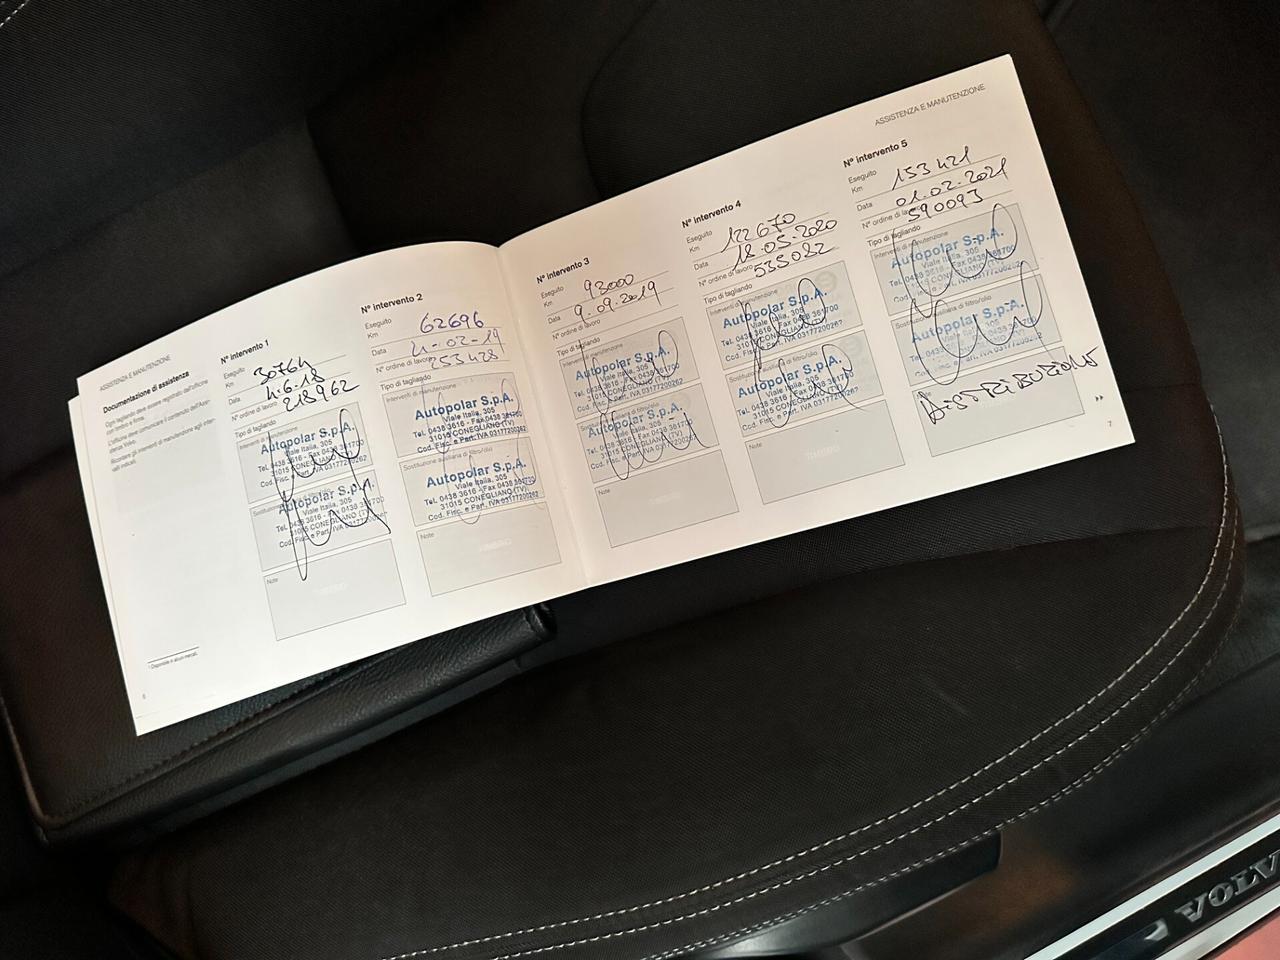 ASSISTENZA E MANUTENZIONE
Documentazione di assistenza
Ogni tagliando deve essere registrato dall'officina
con timbro e firma.
L'officina deve comunicare il contenuto dell'Assi-
stenza Volvo.
Ricordare gli interventi di manutenzione agli inter-
valli indicati.
1 Disponibile in alcuni mercati.
6
N° intervento 1
Eseguito
Km
Data 4.6.18
N° ordine di lavoro 218962
Tipo di tagliando
Interventi di manutenzione
Autopolar S.p.A.
Viale Italia, 305
Tel. 0438 3616 - Fax 0438 361700
31015 CONEGLIANO (TV)
Cod. Fisc. e Part. IVA 03177200262
Autopolar S.p.A.
Viale Italia, 305
Tel. 0438 3616 - Fax 0438 361700
31015 CONEGLIANO (TV)
Cod. Fisc. e Part. IVA 0317720026
Note
N° intervento 2
Eseguito
Km 62696
Data
N° ordine di lavoro 253428
Tipo di tagliando
Interventi di manutenzione
Autopolar S.p.A.
Viale Italia, 305
Tel. 0438 3616 - Fax 0438 361700
31015 CONEGLIANO (TV)
Cod. Fisc. e Part. IVA 03177200262
Sostituzione ausiliaria di filtro/olio
Autopolar S.p.A.
Viale Italia, 305
Tel. 0438 3616 - Fax 0438 361700
31015 CONEGLIANO (TV)
Cod. Fisc. e Part. IVA 03177200262
Note
N° intervento 3
Eseguito
Km 93000
Data 9.09.2019
N° ordine di lavoro
Tipo di tagliando
Interventi di manutenzione
Autopolar S.p.A.
Viale Italia, 305
Tel. 0438 3616 - Fax 0438 361700
31015 CONEGLIANO (TV)
Cod. Fisc. e Part. IVA 03177200262
Autopolar S.p.A.
Viale Italia, 305
Tel. 0438 3616 - Fax 0438 361700
31015 CONEGLIANO (TV)
Cod. Fisc. e Part. IVA 03177200262
Note
N° intervento 4
Eseguito
Km 122670
Data 18.05.2020
N° ordine di lavoro 535082
Tipo di tagliando
Interventi di manutenzione
Autopolar S.p.A.
Viale Italia, 305
Tel. 0438 3616 - Fax 0438 361700
31015 CONEGLIANO (TV)
Cod. Fisc. e Part. IVA 0317720026
Sostituzione ausiliaria di filtro/olio
Autopolar S.p.A.
Viale Italia, 305
Tel. 0438 3616 - Fax 0438 361700
31015 CONEGLIANO (TV)
Cod. Fisc. e Part. IVA 0317720026
Note
ASSISTENZA E MANUTENZIONE
N° intervento 5
Eseguito
Km 153421
Data 01.02.2021
N° ordine di lavoro 590093
Tipo di tagliando
Interventi di manutenzione
Autopolar S.p.A.
Viale Italia, 305
Tel. 0438 3616 - Fax 0438 361700
31015 CONEGLIANO (TV)
Cod. Fisc. e Part. IVA 03177200262
Sostituzione ausiliaria di filtro/olio
Autopolar S.p.A.
Viale Italia, 305
Tel. 0438 3616 - Fax 0438 361700
31015 CONEGLIANO (TV)
Cod. Fisc. e Part. IVA
Note
DISTRIBUZIONE
7
VOLVO